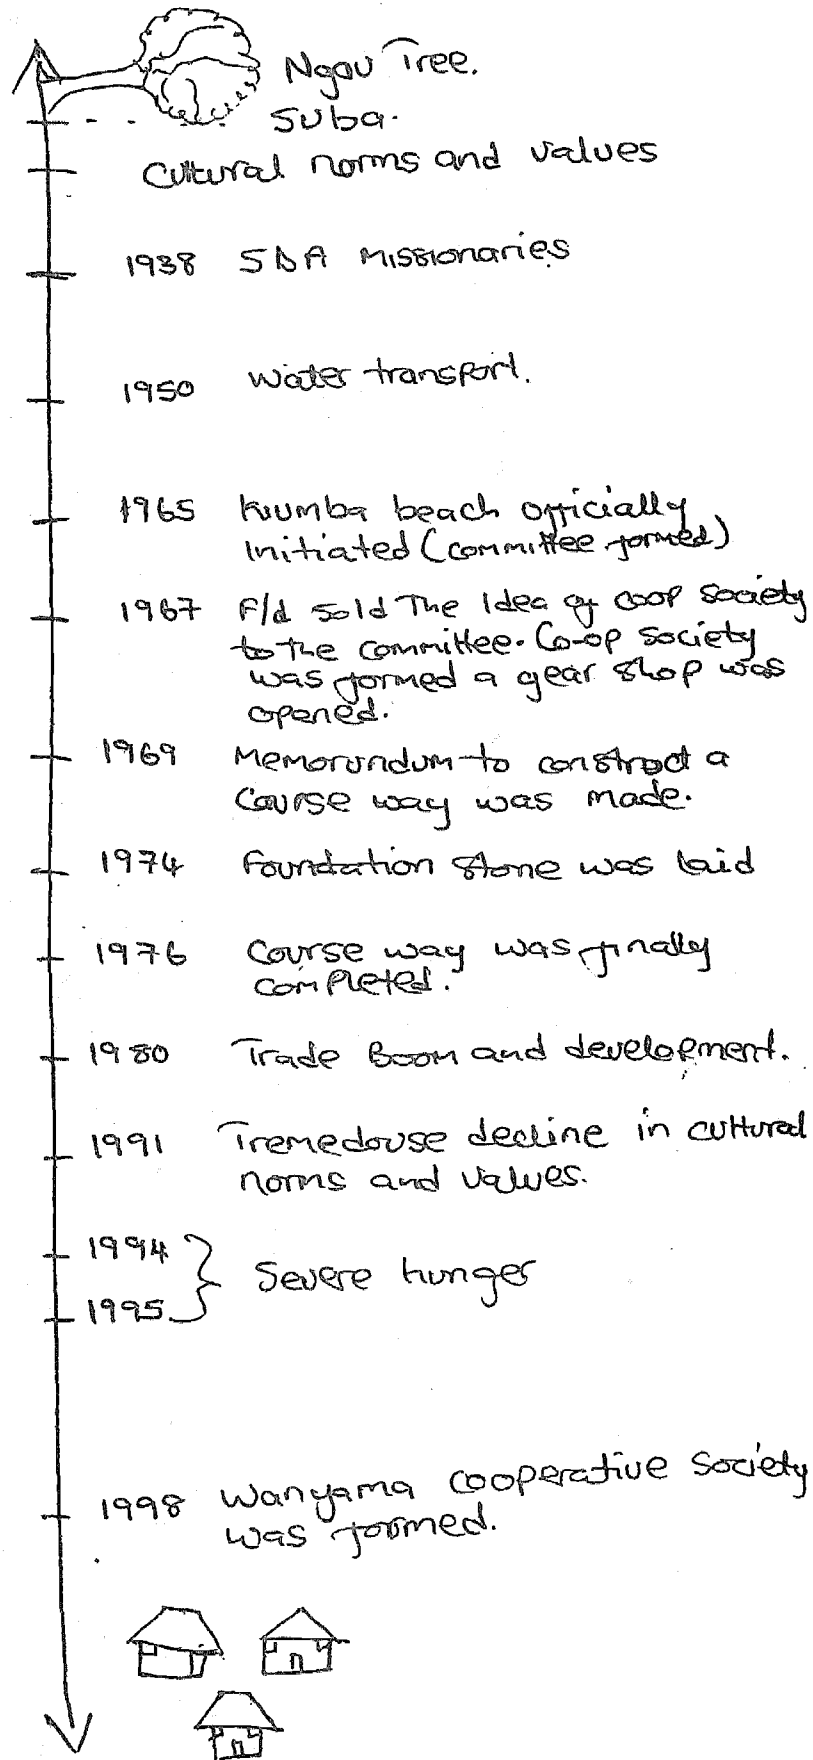 Ngou Tree.
Suba.
Cultural norms and values
1938 SDA Missionaries
1950 Water transport.
1965 Kiumba beach officially
Initiated (committee formed)
1967 F/d sold The Idea of coop society
to the committee. Co-op society
was formed a gear shop was
opened.
1969 Memorundum to construct a
Course way was made.
1974 Foundation stone was laid
1976 Course way was finally
completed.
1980 Trade Boom and development.
1991 Tremedouse decline in cultural
norms and values.
1994
Severe hunger
1995
1998 Wanyama cooperative society
was formed.